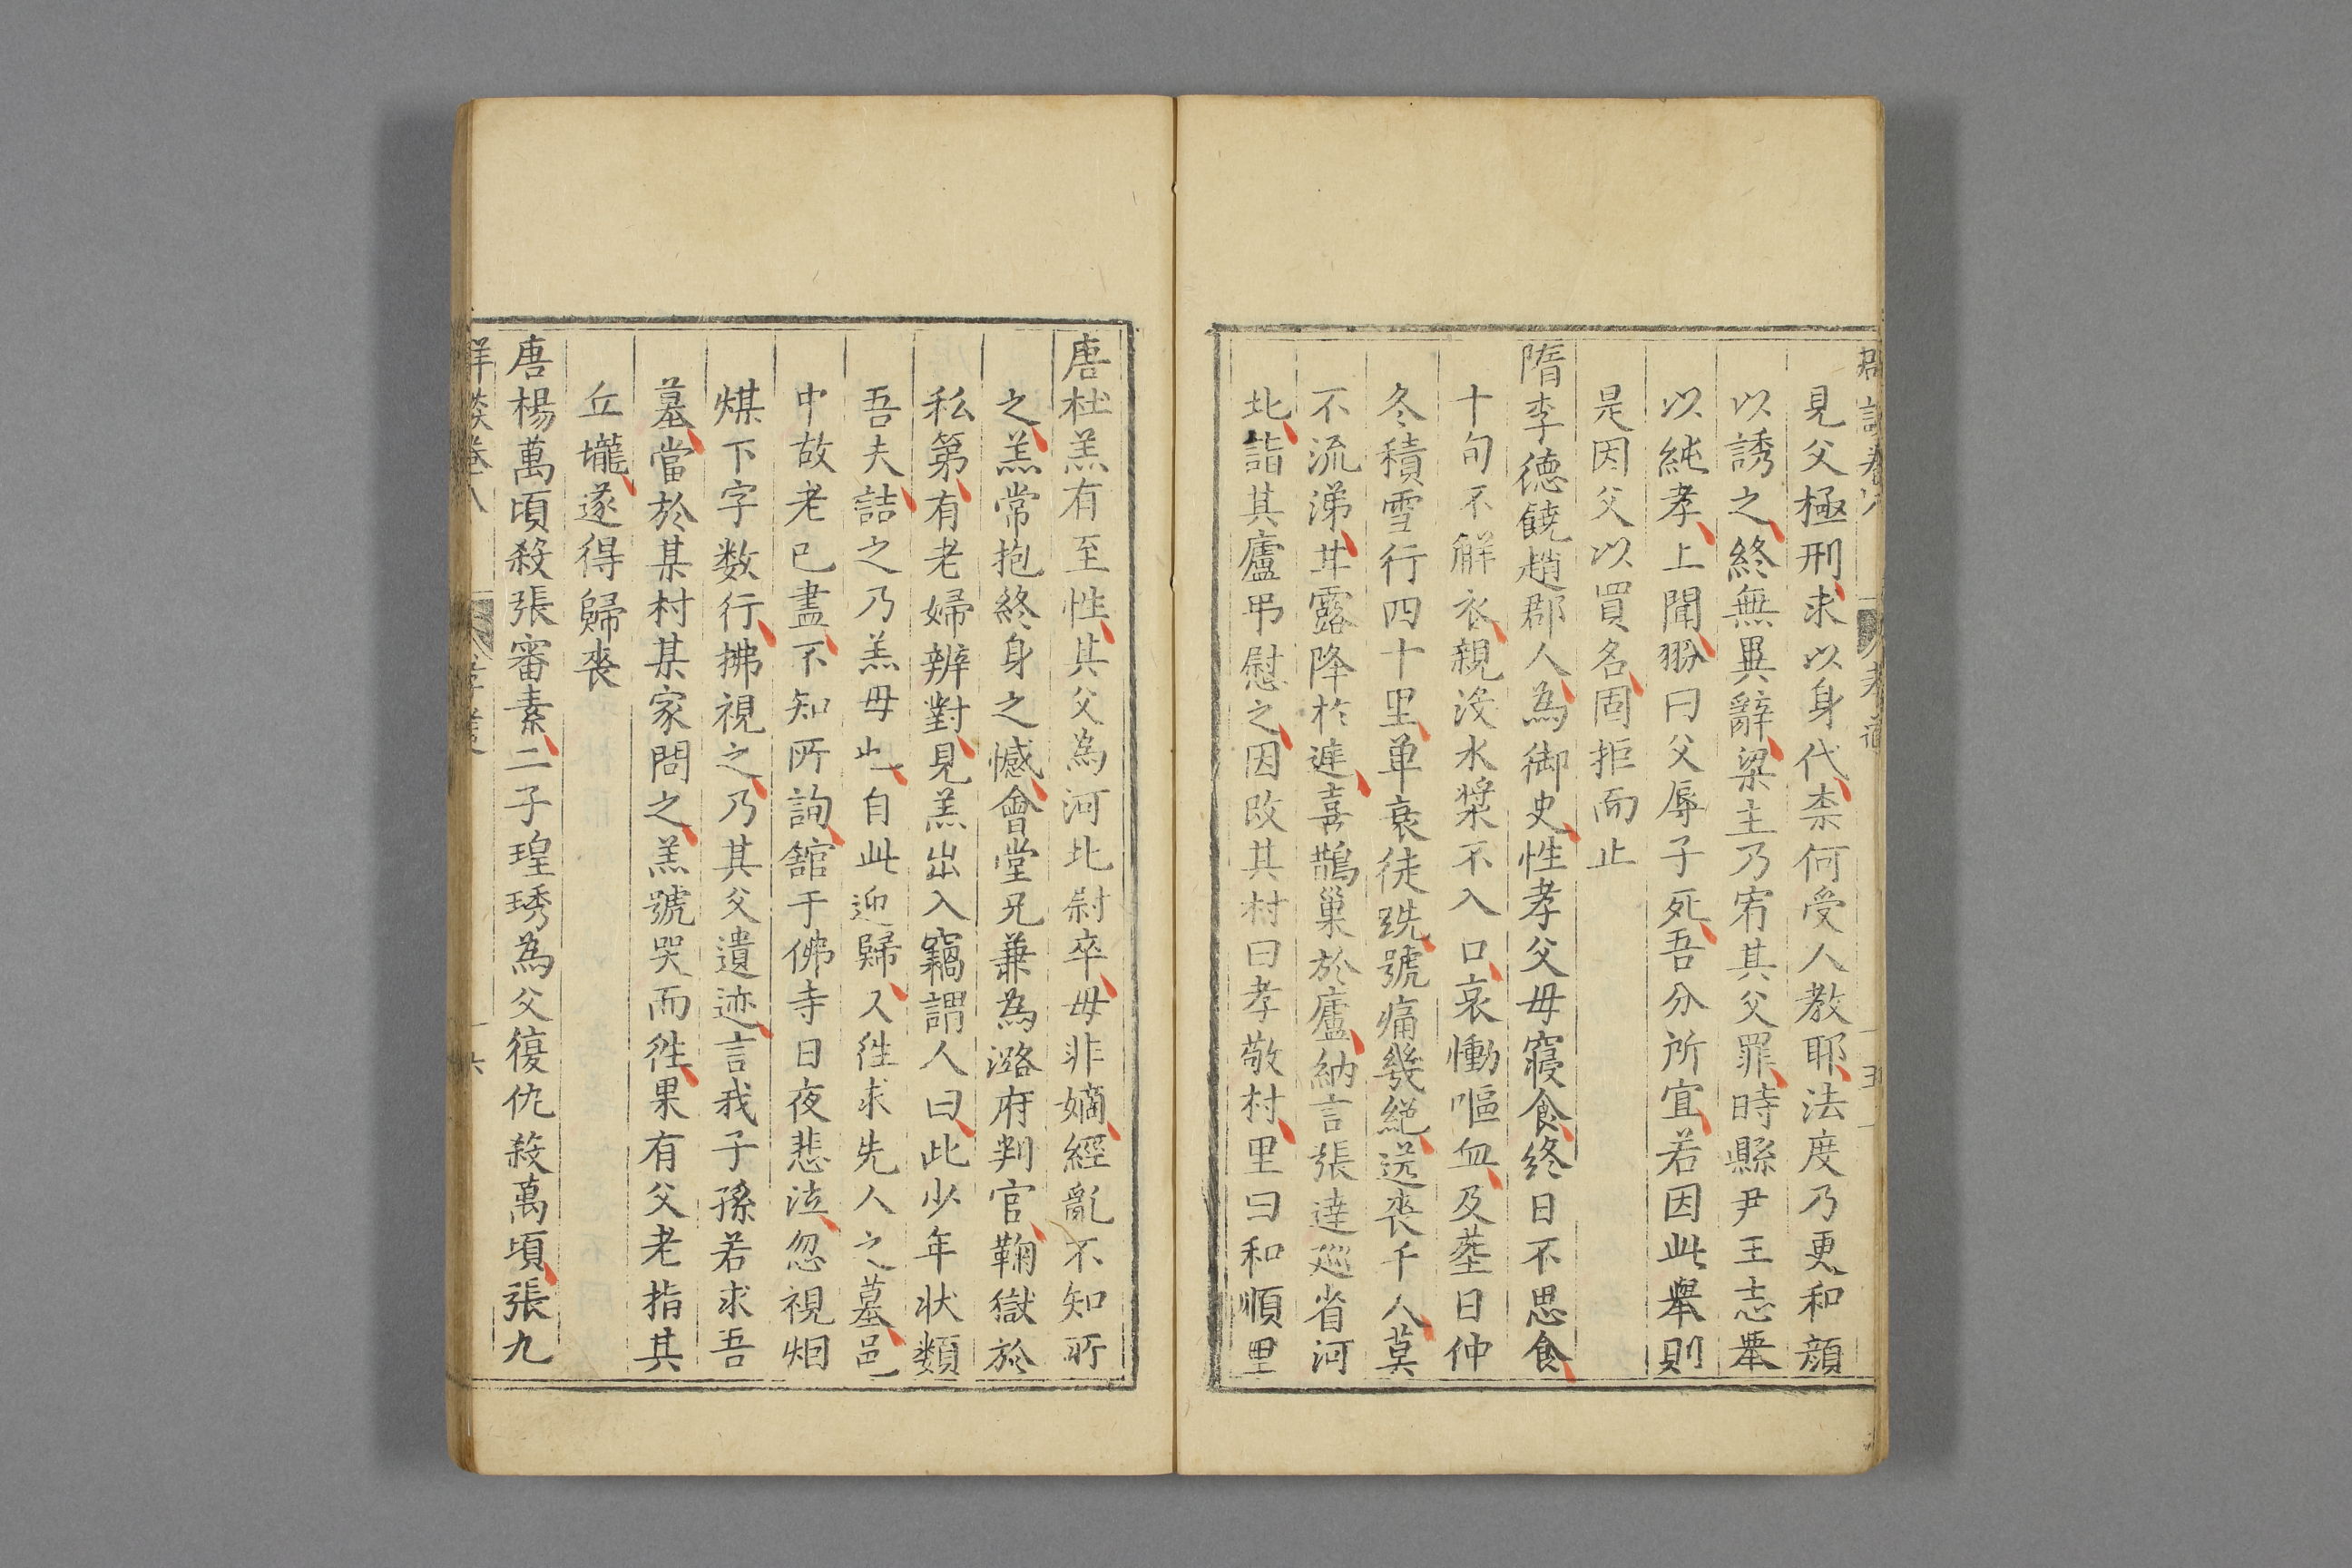 見父極刑求以身代柰何受人教耶法度乃更和顔
以誘之終無異辭梁主乃宥其父罪時縣尹王志舉
以純孝上聞翂曰父辱子死吾分所宜若因此舉則
是因父以買名固拒而止
隋李德饒趙郡人為御史性孝父母寢食終日不思食
十旬不解衣親没水漿不入口哀慟嘔血及塟日仲
冬積雪行四十里单衰徒跣號痛幾絶送喪千人莫
不流涕甘露降於逹喜鵲巢於廬納言張逹廵省河
北詣其廬弔慰之因改其村曰孝敬村里曰和順里
唐杜羔有至性其父為河北尉卒母非嫡經亂不知所
之羔常抱終身之憾會堂兄兼為潞府判官鞠獄於
私第有老婦辨對見羔出入竊謂人曰此少年状類
吾夫詰之乃羔母也自此迎歸又徃求先人之墓邑
中故老已盡不知所詢舘于佛寺日夜悲泣忽視烟
煤下字数行拂視之乃其父遺迹言我子孫若求吾
墓當於某村某家問之羔號哭而徃果有父老指其
丘壠遂得歸喪
唐楊萬頃殺張審素二子瑝琇為父復仇殺萬頃張九